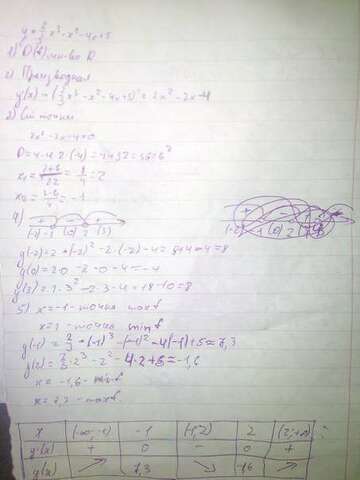 y=2/3x³-x²-4x+5
1) D(y) мн-во R
2) Производная
y'(x)=(2/3x³-x²-4x+5)'=2x²-2x-4
3) Ст. точки
2x²-2x-4=0
D=4-4·2·(-4)=4+32=36=6²
x₁=(2+6)/22=8/4=2
x₂=(2-6)/4=-1
4) + - +
(-2) -1 (0) 2 (3)
+ -
(-2) -1 (0) 2
y(-2)=2·(-2)²-2·(-2)-4=8+4-4=8
y(0)=2·0-2·0-4=-4
y(3)=2·3²-2·3-4=18-10=8
5) x=-1-точка max f
x=2-точка min f
y(-1)=2/3·(-1)³-(-1)²-4(-1)+5≈7,3
y(2)=2/3·2³-2²-4·2+5≈-1,6
x=-1,6-min f
x=7,3-max f
x (-∞,-1) -1 (-1,2) 2 (2,+∞)
y'(x) + 0 - 0 +
y(x) ↗ 7,3 ↘ -1,6 ↗